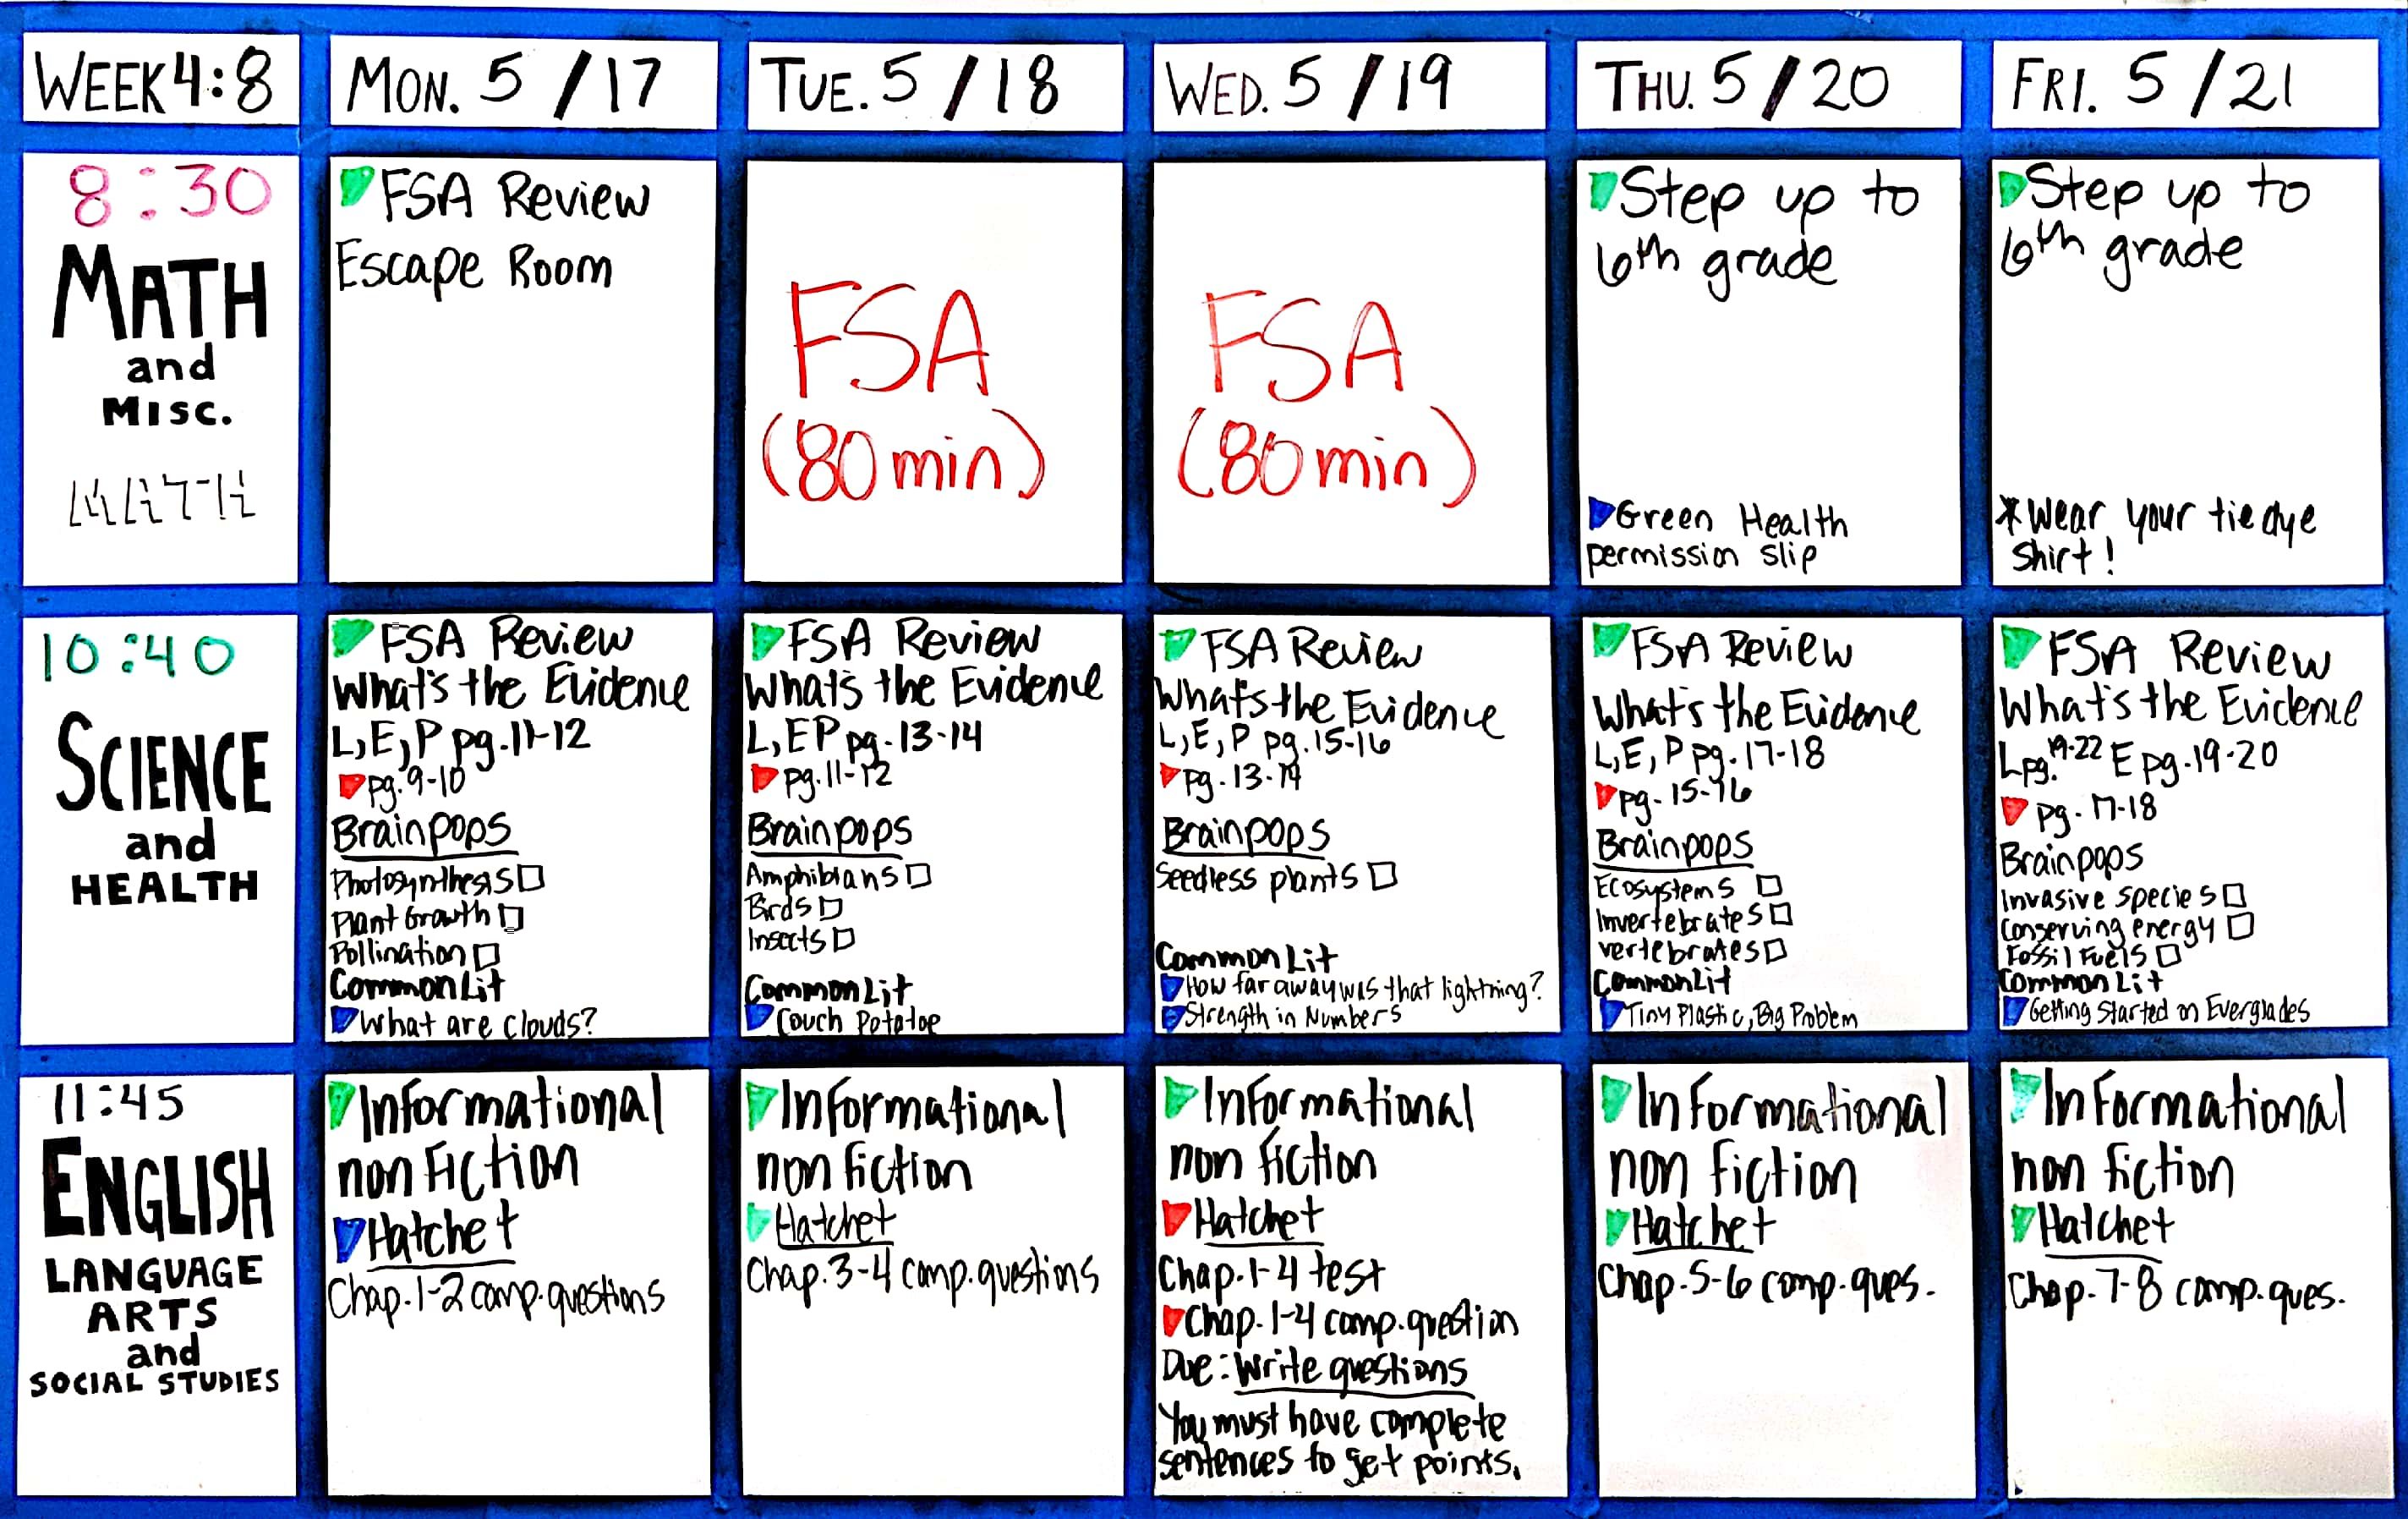 WEEK 4:8
MON. 5/17
TUE. 5/18
WED. 5/19
THU. 5/20
FRI. 5/21
8:30
MATH
and
MISC.
MATH
FSA Review
Escape Room
FSA
(80 min)
FSA
(80 min)
Step up to
6th grade
Green Health
permission slip
Step up to
6th grade
*Wear your tie dye
shirt!
10:40
SCIENCE
and
HEALTH
FSA Review
What's the Evidence
L, E, P pg. 11-12
pg. 9-10
Brainpops
Photosynthesis
Plant Growth
Pollination
CommonLit
What are clouds?
FSA Review
What's the Evidence
L, E P pg. 13-14
pg. 11-12
Brainpops
Amphibians
Birds
Insects
CommonLit
Couch Potatoe
FSA Review
What's the Evidence
L, E, P pg. 15-16
pg. 13-14
Brainpops
Seedless plants
CommonLit
How far away was that lightning?
Strength in Numbers
FSA Review
What's the Evidence
L, E, P pg. 17-18
pg. 15-16
Brainpops
Ecosystems
Invertebrates
vertebrates
CommonLit
Tiny Plastic, Big Problem
FSA Review
What's the Evidence
L pg. 19-22 E pg. 19-20
pg. 17-18
Brainpops
Invasive species
Conserving energy
Fossil Fuels
CommonLit
Getting Started on Everglades
11:45
ENGLISH
LANGUAGE
ARTS
and
SOCIAL STUDIES
Informational
non Fiction
Hatchet
Chap. 1-2 comp. questions
Informational
non fiction
Hatchet
Chap. 3-4 comp. questions
Informational
non fiction
Hatchet
Chap. 1-4 test
Chap. 1-4 comp. question
Due: Write questions
You must have complete
sentences to get points.
Informational
non fiction
Hatchet
Chap. 5-6 comp. ques.
Informational
non fiction
Hatchet
Chap. 7-8 comp. ques.